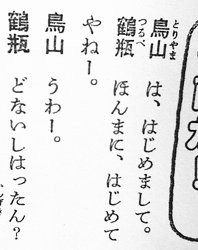 鳥山　は、はじめまして。
鶴瓶　ほんまに、はじめて
やねー。
鳥山　うわー。
鶴瓶　どないしはったん？